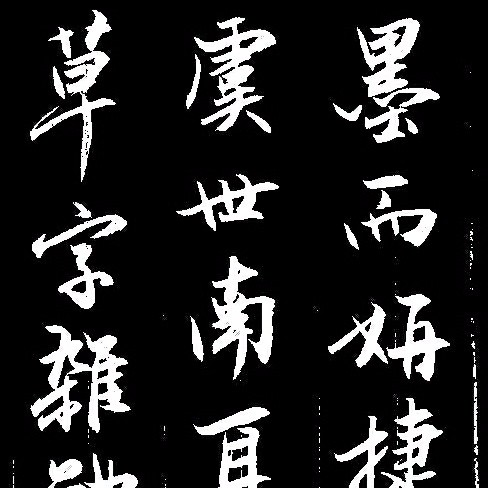 墨而妍捷
虞世南耳
草字雜